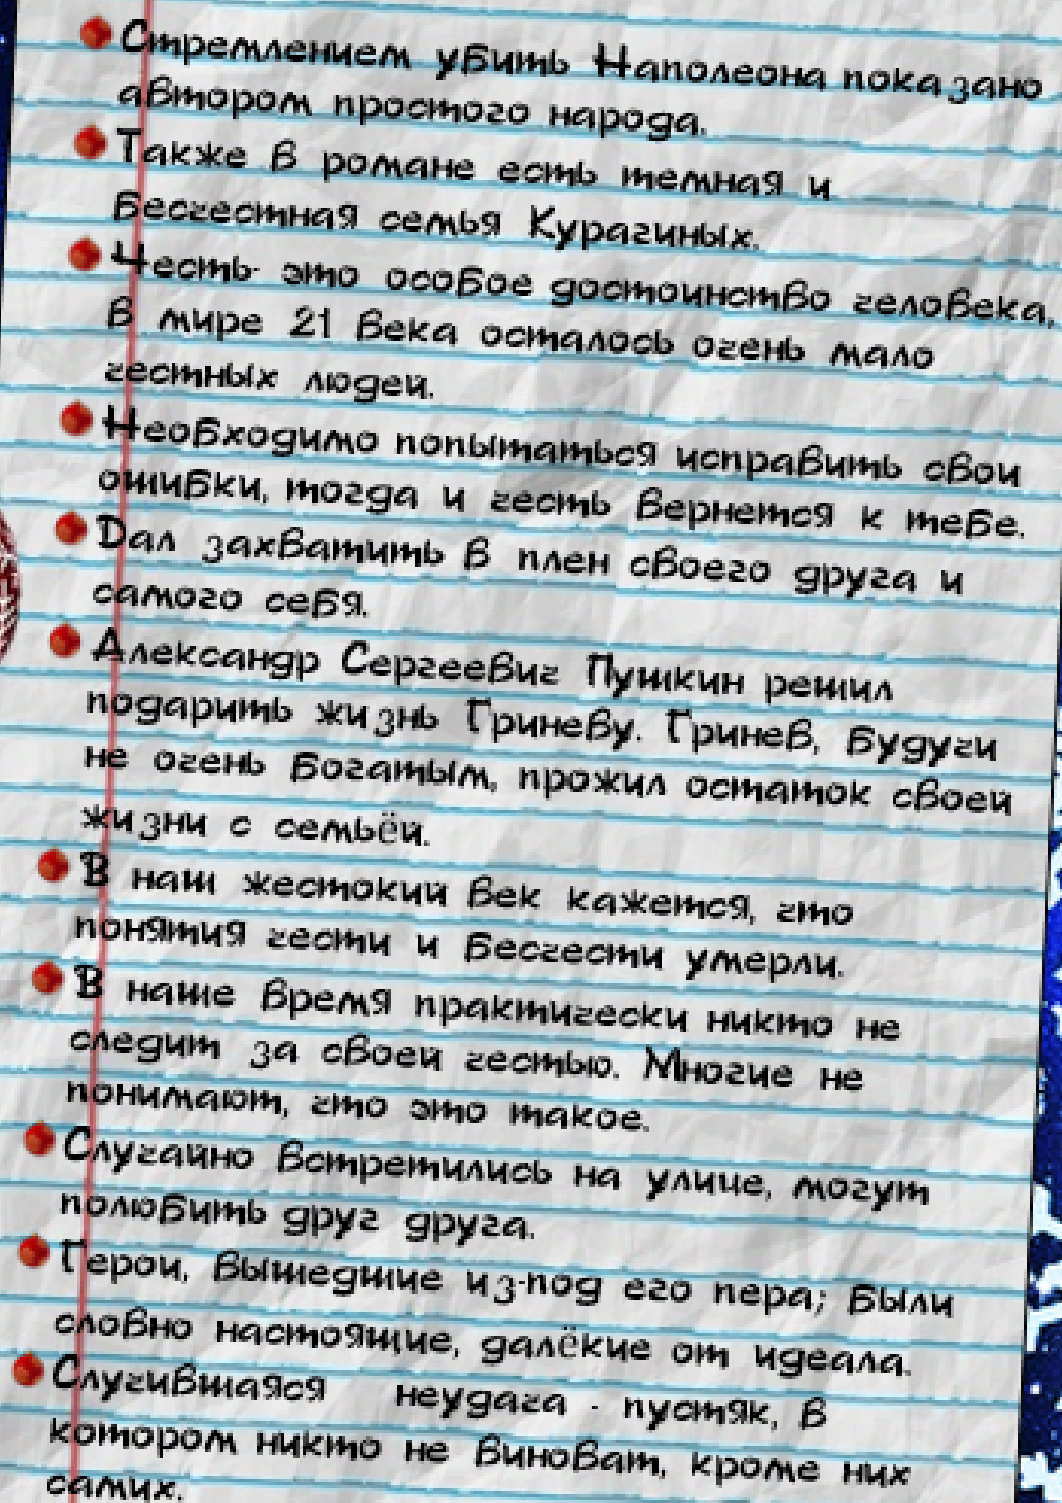 Стремлением убить Наполеона показано
автором простого народа.
Также в романе есть темная и
бесчестная семья Курагиных.
Честь- это особое достоинство человека.
В мире 21 века осталось очень мало
честных людей.
Необходимо попытаться исправить свои
ошибки, тогда и честь вернется к тебе.
Дал захватить в плен своего друга и
самого себя.
Александр Сергеевич Пушкин решил
подарить жизнь Гриневу. Гринев, будучи
не очень богатым, прожил остаток своей
жизни с семьёй.
В наш жестокий век кажется, что
понятия чести и бесчести умерли.
В наше время практически никто не
следит за своей честью. Многие не
понимают, что это такое.
Случайно встретились на улице, могут
полюбить друг друга.
Герои, вышедшие из-под его пера; были
словно настоящие, далёкие от идеала.
Случившаяся неудача - пустяк, в
котором никто не виноват, кроме них
самих.